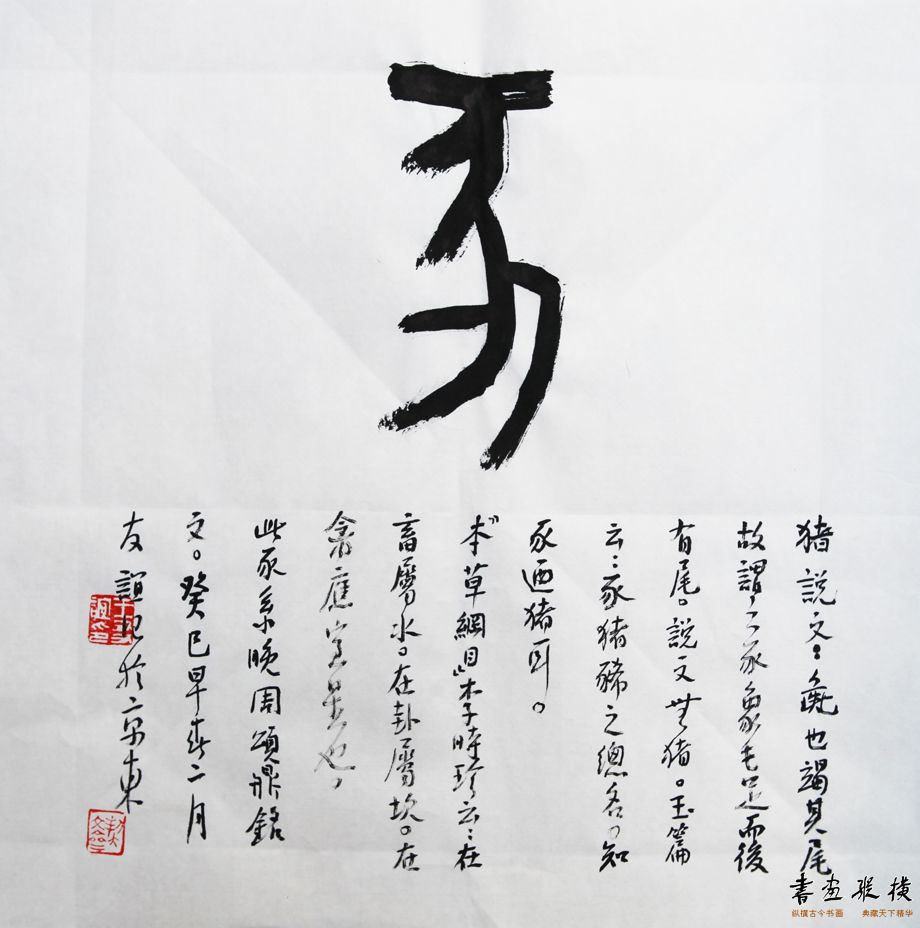 豕
猪說文：彘也竭其尾
故謂之豕象毛足而後
有尾。說文無猪。玉篇
云：豕猪豨之總名。知
豕迺猪耳。
"本草綱目"李時珍云：在
畜屬水。在卦屬坎。在
禽應室星也，
此豕系晚周頌鼎銘
文。癸巳早春二月
友誼記於京東
書画縱橫
纵横古今书画 典藏天下精华